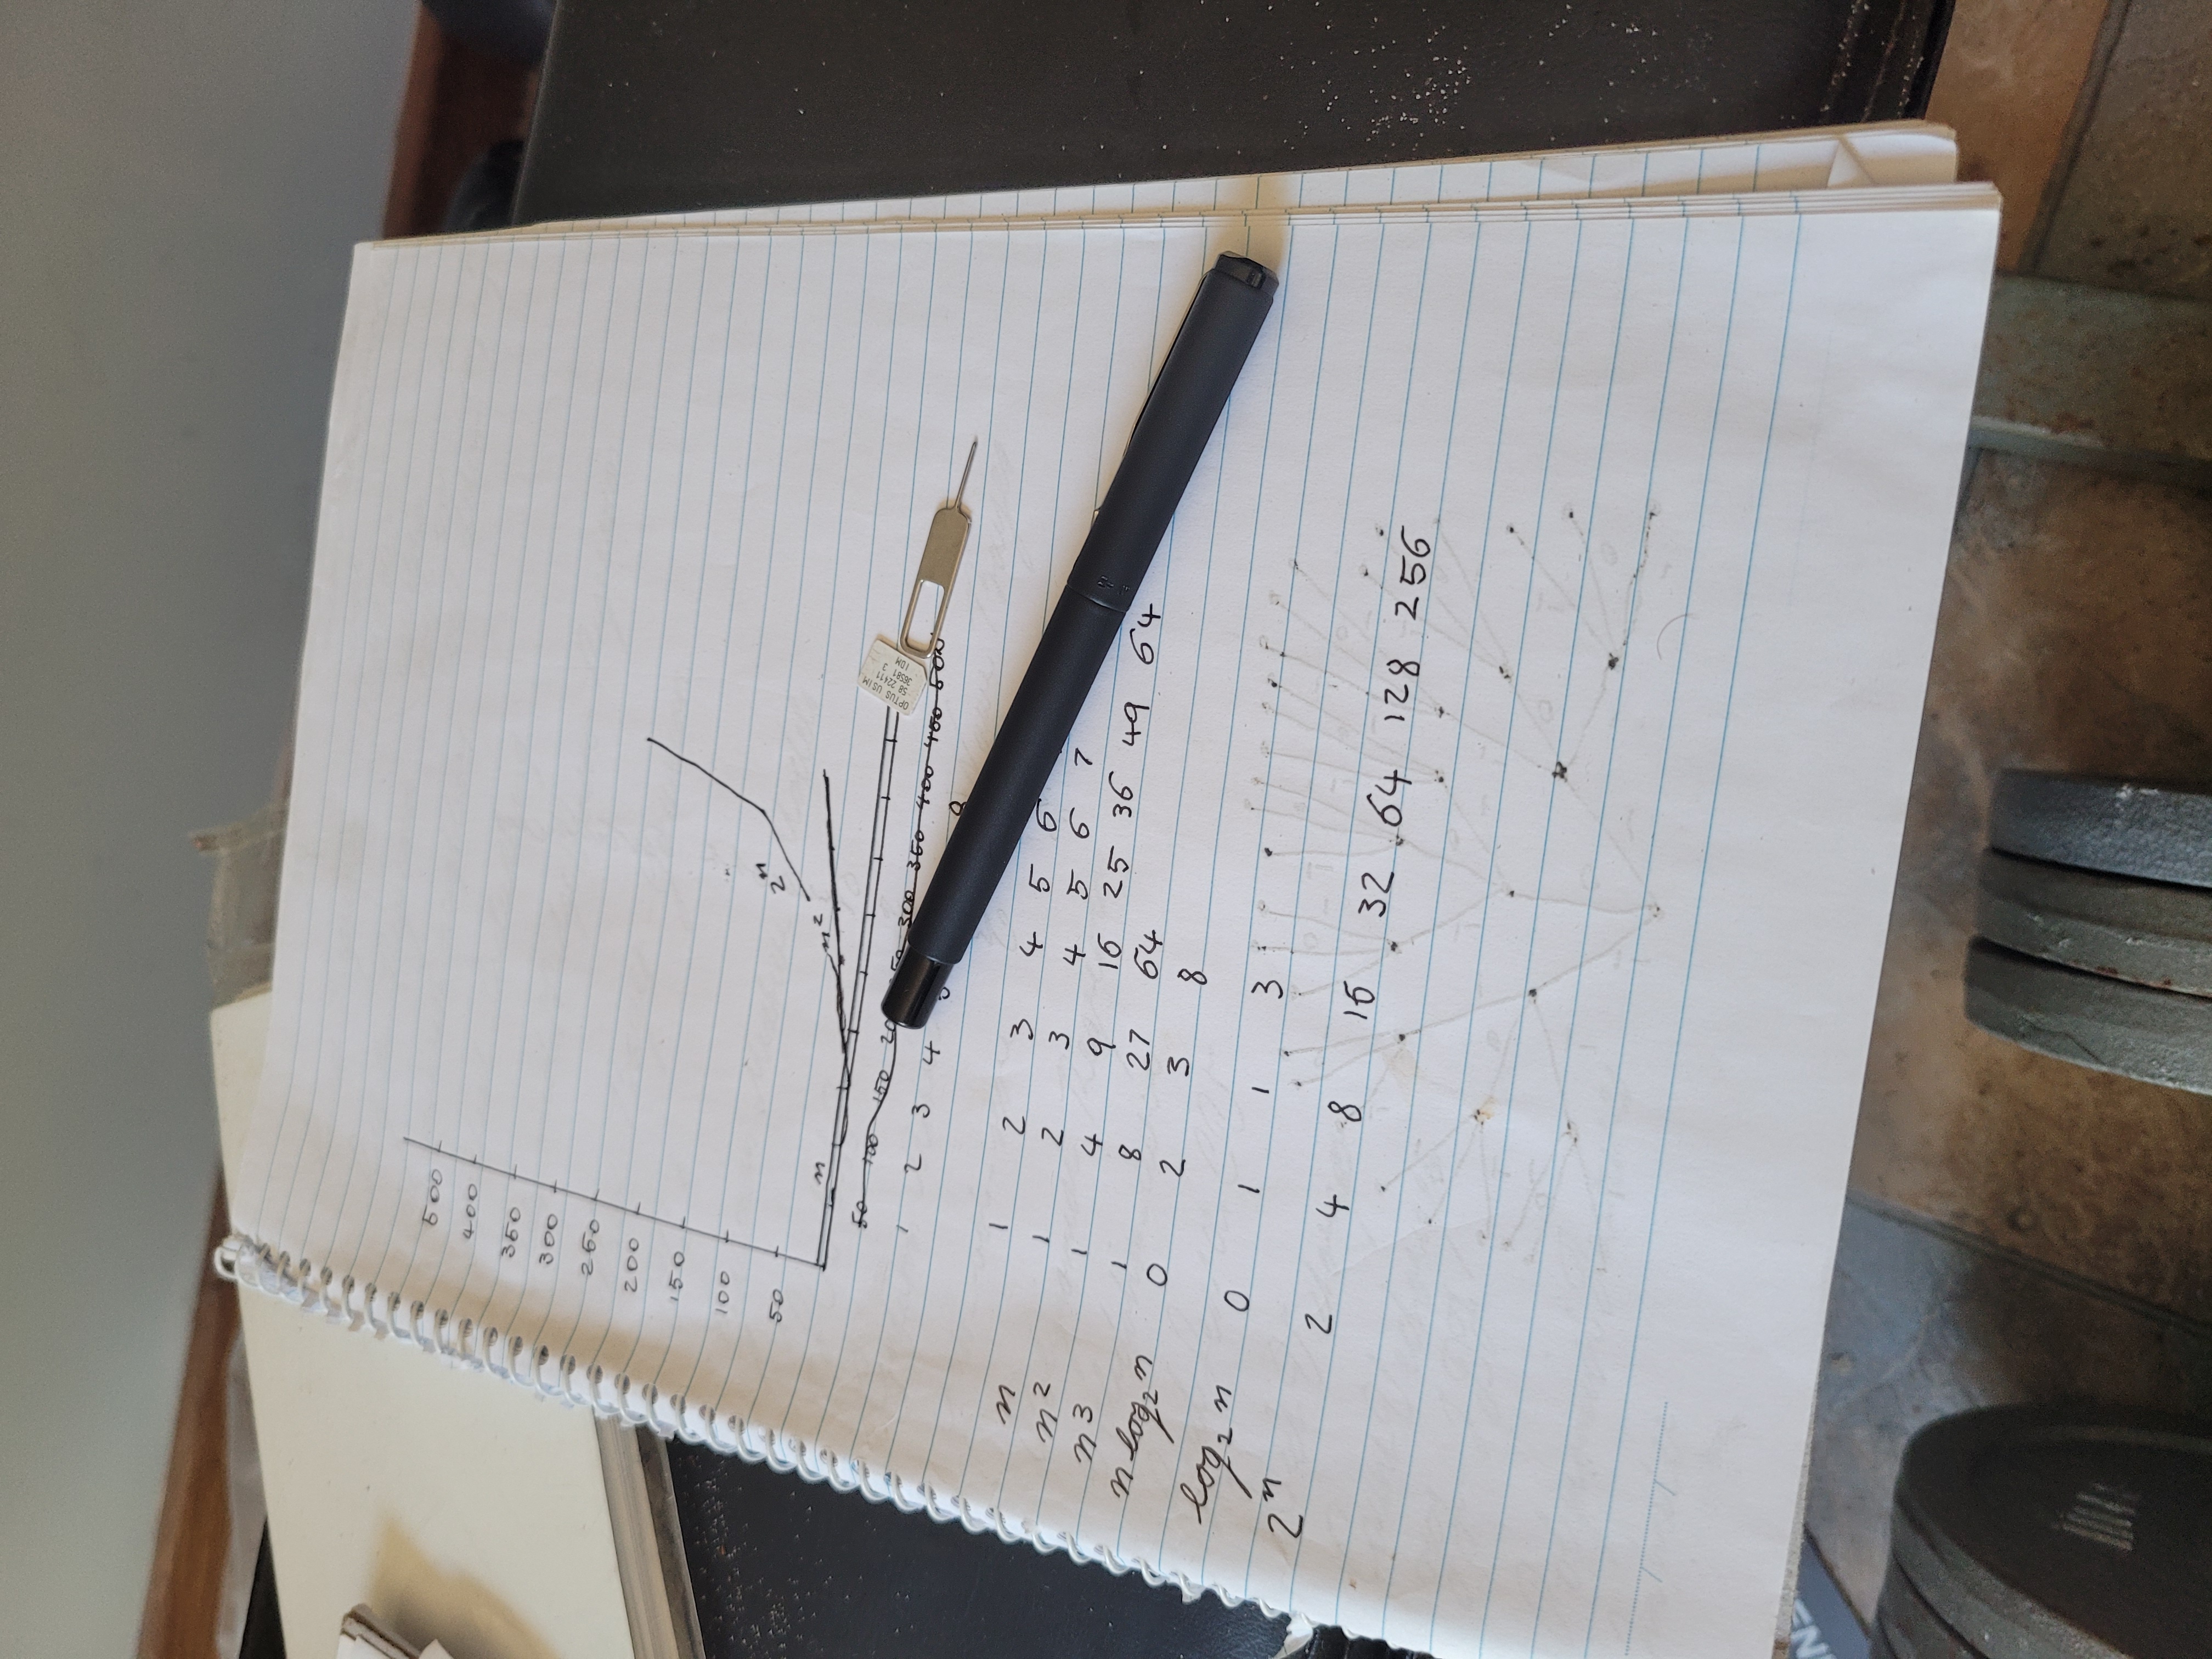 500
400
350
300
250
200
150
100
50
2ⁿ
n n²
50 100 150 20 300 350 400 450 500
1 2 3 4
OPTUS USIM
58 22411
36581 3
IDM
n 1 2 3 4 5 6
n² 1 2 3 4 5 6 7
n3 1 4 9 16 25 36 49 64
n log₂ n 1 8 27 64
0 2 3 8
log₂ n 0 1 1 3
2ⁿ 2 4 8 16 32 64 128 256
EN